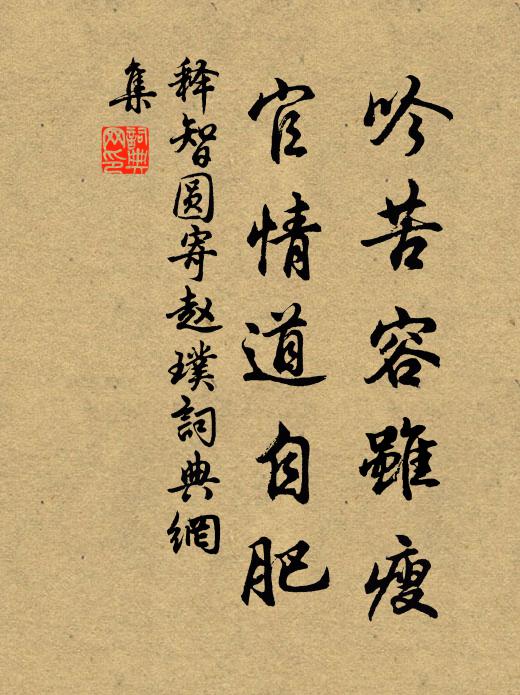 吟苦容雖瘦
官情道自肥
释智圆寄赵璞詞典網
集
詞典
网印